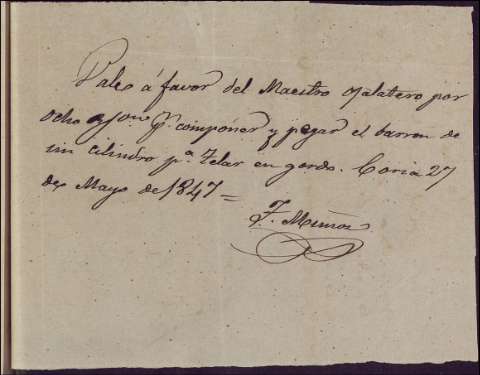 Vale á favor del Maestro Ojalatero por
ocho componer y pegar el barron de
un cilindro pª Telar en gordo. Coria 27
de Mayo de 1847=
F. Muñoz